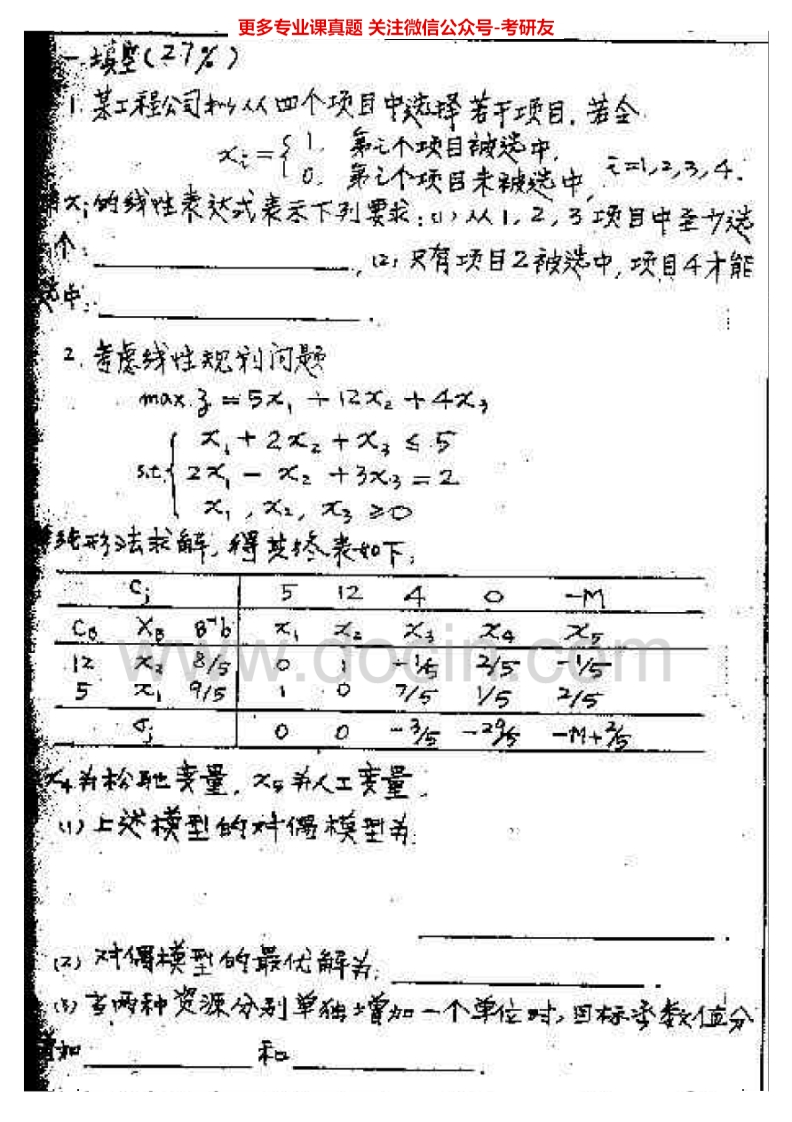 更多专业课真题 关注微信公众号-考研友
一、填空(27%)
1. 某工程公司拟从四个项目中选择若干项目,若令
x_i = { 1, 第i个项目被选中,
0, 第i个项目未被选中, i=1,2,3,4.
x_i的线性表达式表示下列要求:(1)从1,2,3项目中至少选
个: ____________, (2)只有项目2被选中,项目4才能
选中: ____________.
2. 考虑线性规划问题
max z = 5x₁ + 12x₂ + 4x₃
x₁ + 2x₂ + x₃ ≤ 5
s.t. { 2x₁ - x₂ + 3x₃ = 2
x₁, x₂, x₃ ≥ 0
纯形法求解,得其终表如下:
C_j 5 12 4 0 -M
C_B X_B B⁻¹b x₁ x₂ x₃ x₄ x₅
12 x₂ 8/5 0 1 -1/5 2/5 -1/5
5 x₁ 9/5 1 0 7/5 1/5 2/5
σ_j 0 0 -3/5 -29/5 -M+2/5
x₄为松弛变量,x₅为人工变量,
(1)上述模型的对偶模型为:
____________.
(2)对偶模型的最优解为: ____________.
(3)当两种资源分别单独增加一个单位时,目标函数值分
增加 ____________ 和 ____________.
www.docin.com